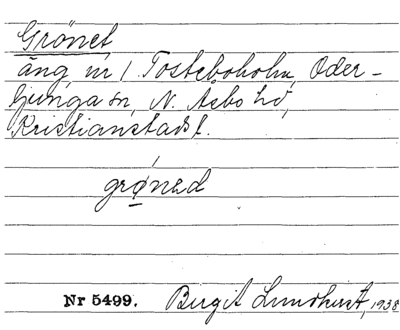 Grönet
äng nr 1 Tosteboholm, Oder-
ljunga sn, N. Åsbo hd,
Kristianstads l.
grønəd
Nr 5499. Birgit Lundhust, 1938